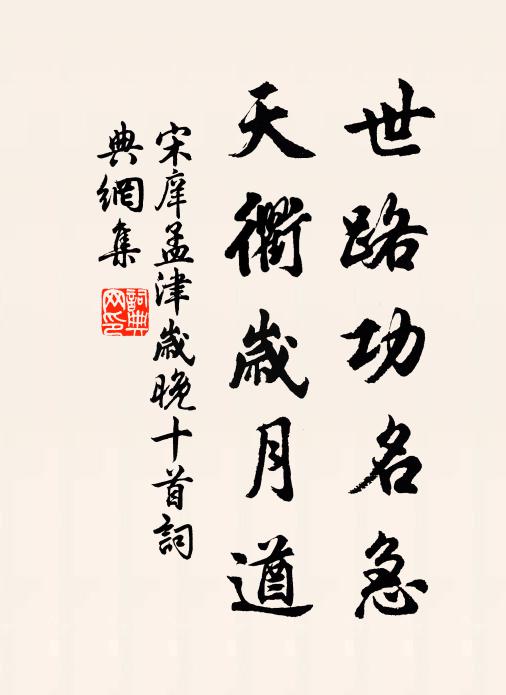 世路功名急
天衢歲月遒
宋庠孟津歲晚十首詞
典網集
詞典
网印